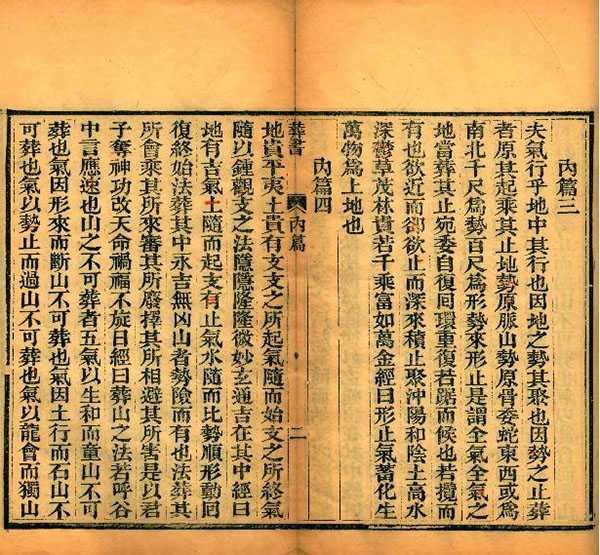 內篇三
夫氣行乎地中其行也因地之勢其聚也因勢之止葬
者原其起乘其止地勢原脈山勢原骨委蛇東西或爲
南北千尺爲勢百尺爲形勢來形止是謂全氣全氣之
地當葬其止宛委自復回環重復若踞而候也若攬而
有也欲進而卻欲止而深來積止聚沖陽和陰土高水
深鬱草茂林貴若千乘富如萬金經曰形止氣蓄化生
萬物爲上地也
內篇四
地貴平夷土貴有支支之所起氣隨而始支之所終氣
隨以鍾觀支之法隱隱隆隆微妙玄通吉在其中經曰
地有吉氣土隨而起支有止氣水隨而比勢順形動回
復終始法葬其中永吉無凶山者勢險而有也法葬其
所會乘其所來審其所廢擇其所相避其所害是以君
子奪神功改天命禍福不旋日經曰葬山之法若呼谷
中言應速也山之不可葬者五氣以生和而童山不可
葬也氣因形來而斷山不可葬也氣因土行而石山不
可葬也氣以勢止而過山不可葬也氣以龍會而獨山
葬書
內篇
二